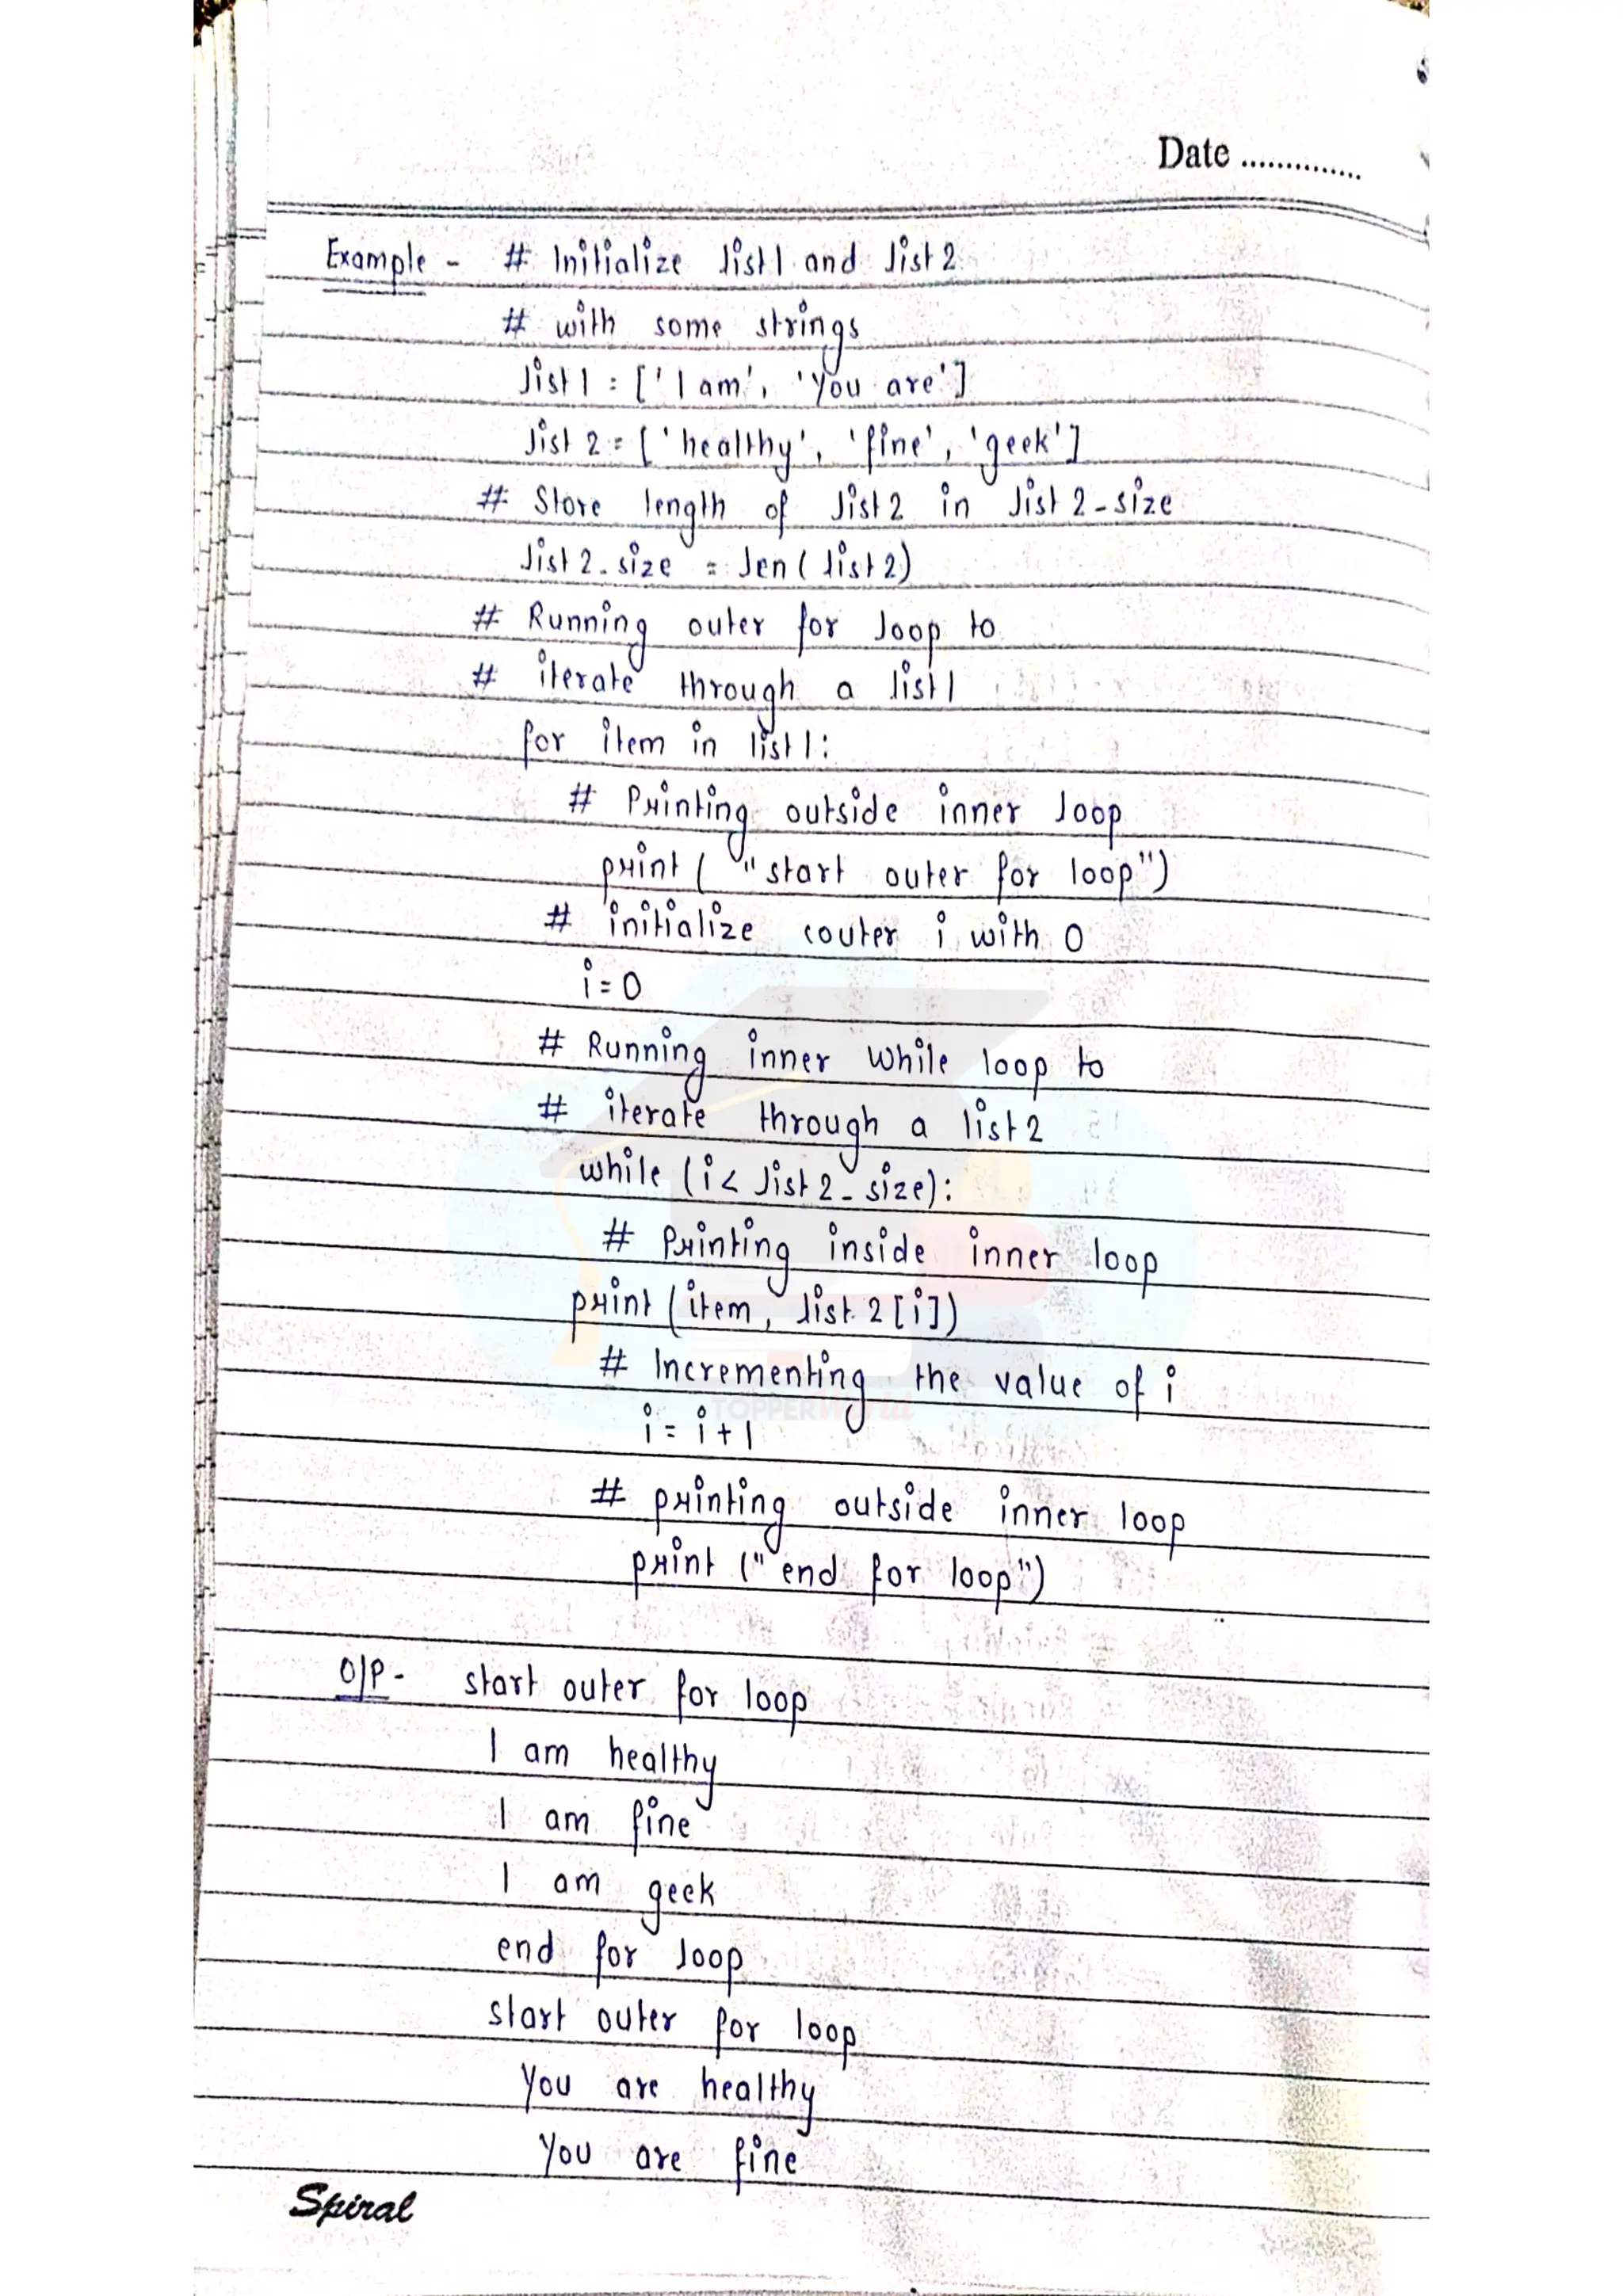 Date ..............
Example - # Initialize list1 and list2
# with some strings
list1 = ['I am', 'You are']
list2 = ['healthy', 'fine', 'geek']
# Store length of list2 in list2-size
list2-size = len(list2)
# Running outer for loop to
# iterate through a list1
for item in list1:
# Printing outside inner loop
print ( "start outer for loop")
# initialize couter i with 0
i = 0
# Running inner while loop to
# iterate through a list2
while (i < list2-size):
# Printing inside inner loop
print (item, list2[i])
# Incrementing the value of i
TOPPERWorld
i = i+1
# printing outside inner loop
print ("end for loop")
O/P - start outer for loop
I am healthy
I am fine
I am geek
end for loop
start outer for loop
You are healthy
You are fine
Spiral